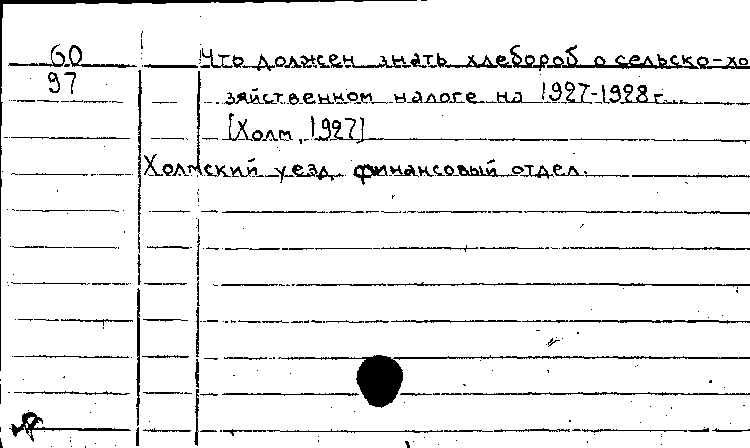 60 Что должен знать хлебороб о сельско-хо
97 зяйственном налоге на 1927-1928 г.
[Холм, 1927]
Холмский уезд. финансовый отдел.